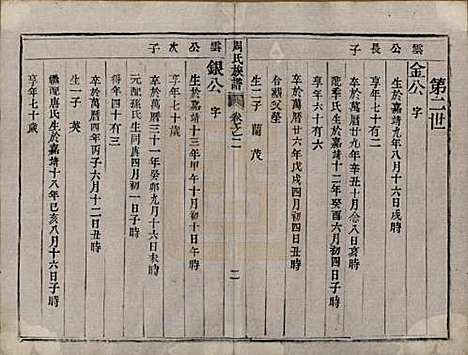 第二世
雲公長子
金公 字
生於嘉靖九年八月十六日戌時
卒於萬曆廿九年辛丑十月叁八日寅時
享年七十二
配季氏生於嘉靖十二年癸酉六月初四日子時
卒於萬曆廿六年戊戌四月初四日丑時
享年六十六
合葬父塋
生二子 蘭 茂
周氏族譜 卷之二 二
雲公次子
銀公 字
生於嘉靖十三年甲午十月初十日午時
卒於萬曆三十一年癸卯九月十六日寅時
享年七十歲
元配孫氏生 同月四月初一日
卒於萬曆四年丙子六月十二日丑時
得年四十有三
生一子 英
繼配唐氏生於嘉靖十八年己亥八月十六日子時
享年七十歲